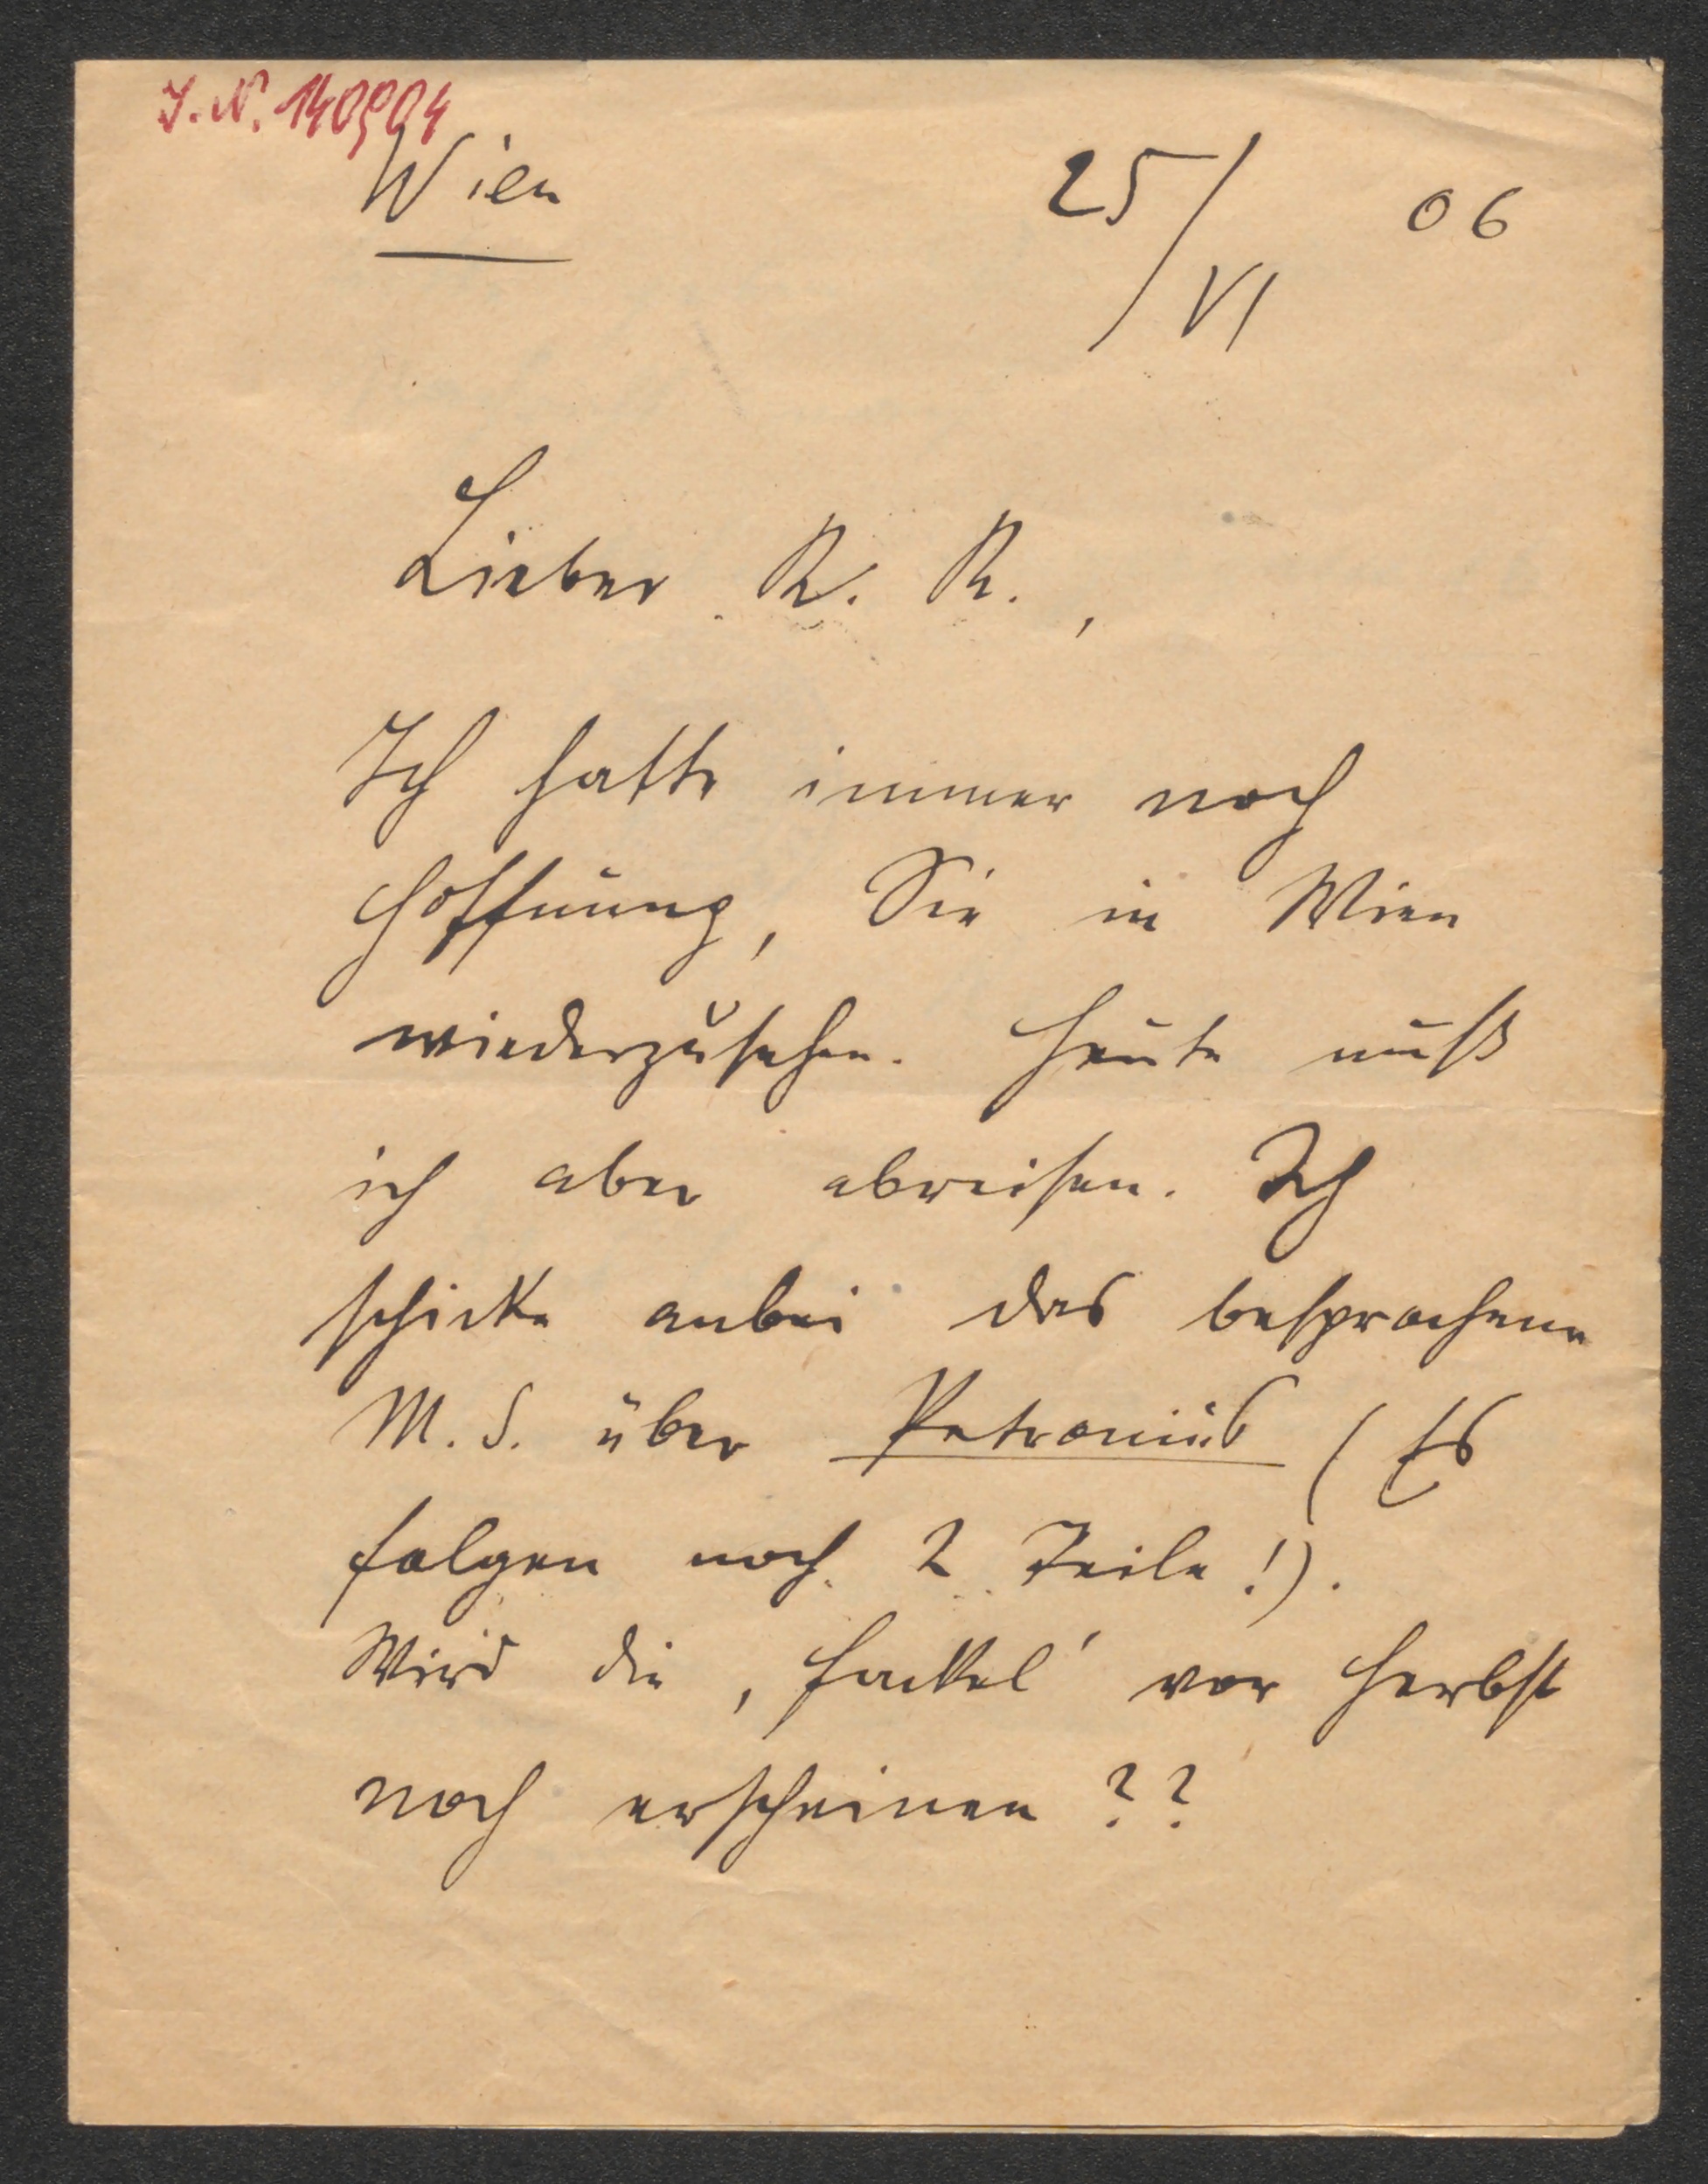 J. N. 140904
Wien 25/VI 06
Lieber K. K.,
Ich hatte immer noch
Hoffnung, Sie in Wien
wiederzusehen. Heute muß
ich aber abreisen. Ich
schicke anbei das besprochene
M. S. über Petronius (Es
folgen noch 2 Teile!).
Wird die ‚Fackel' vor Herbst
noch erscheinen??